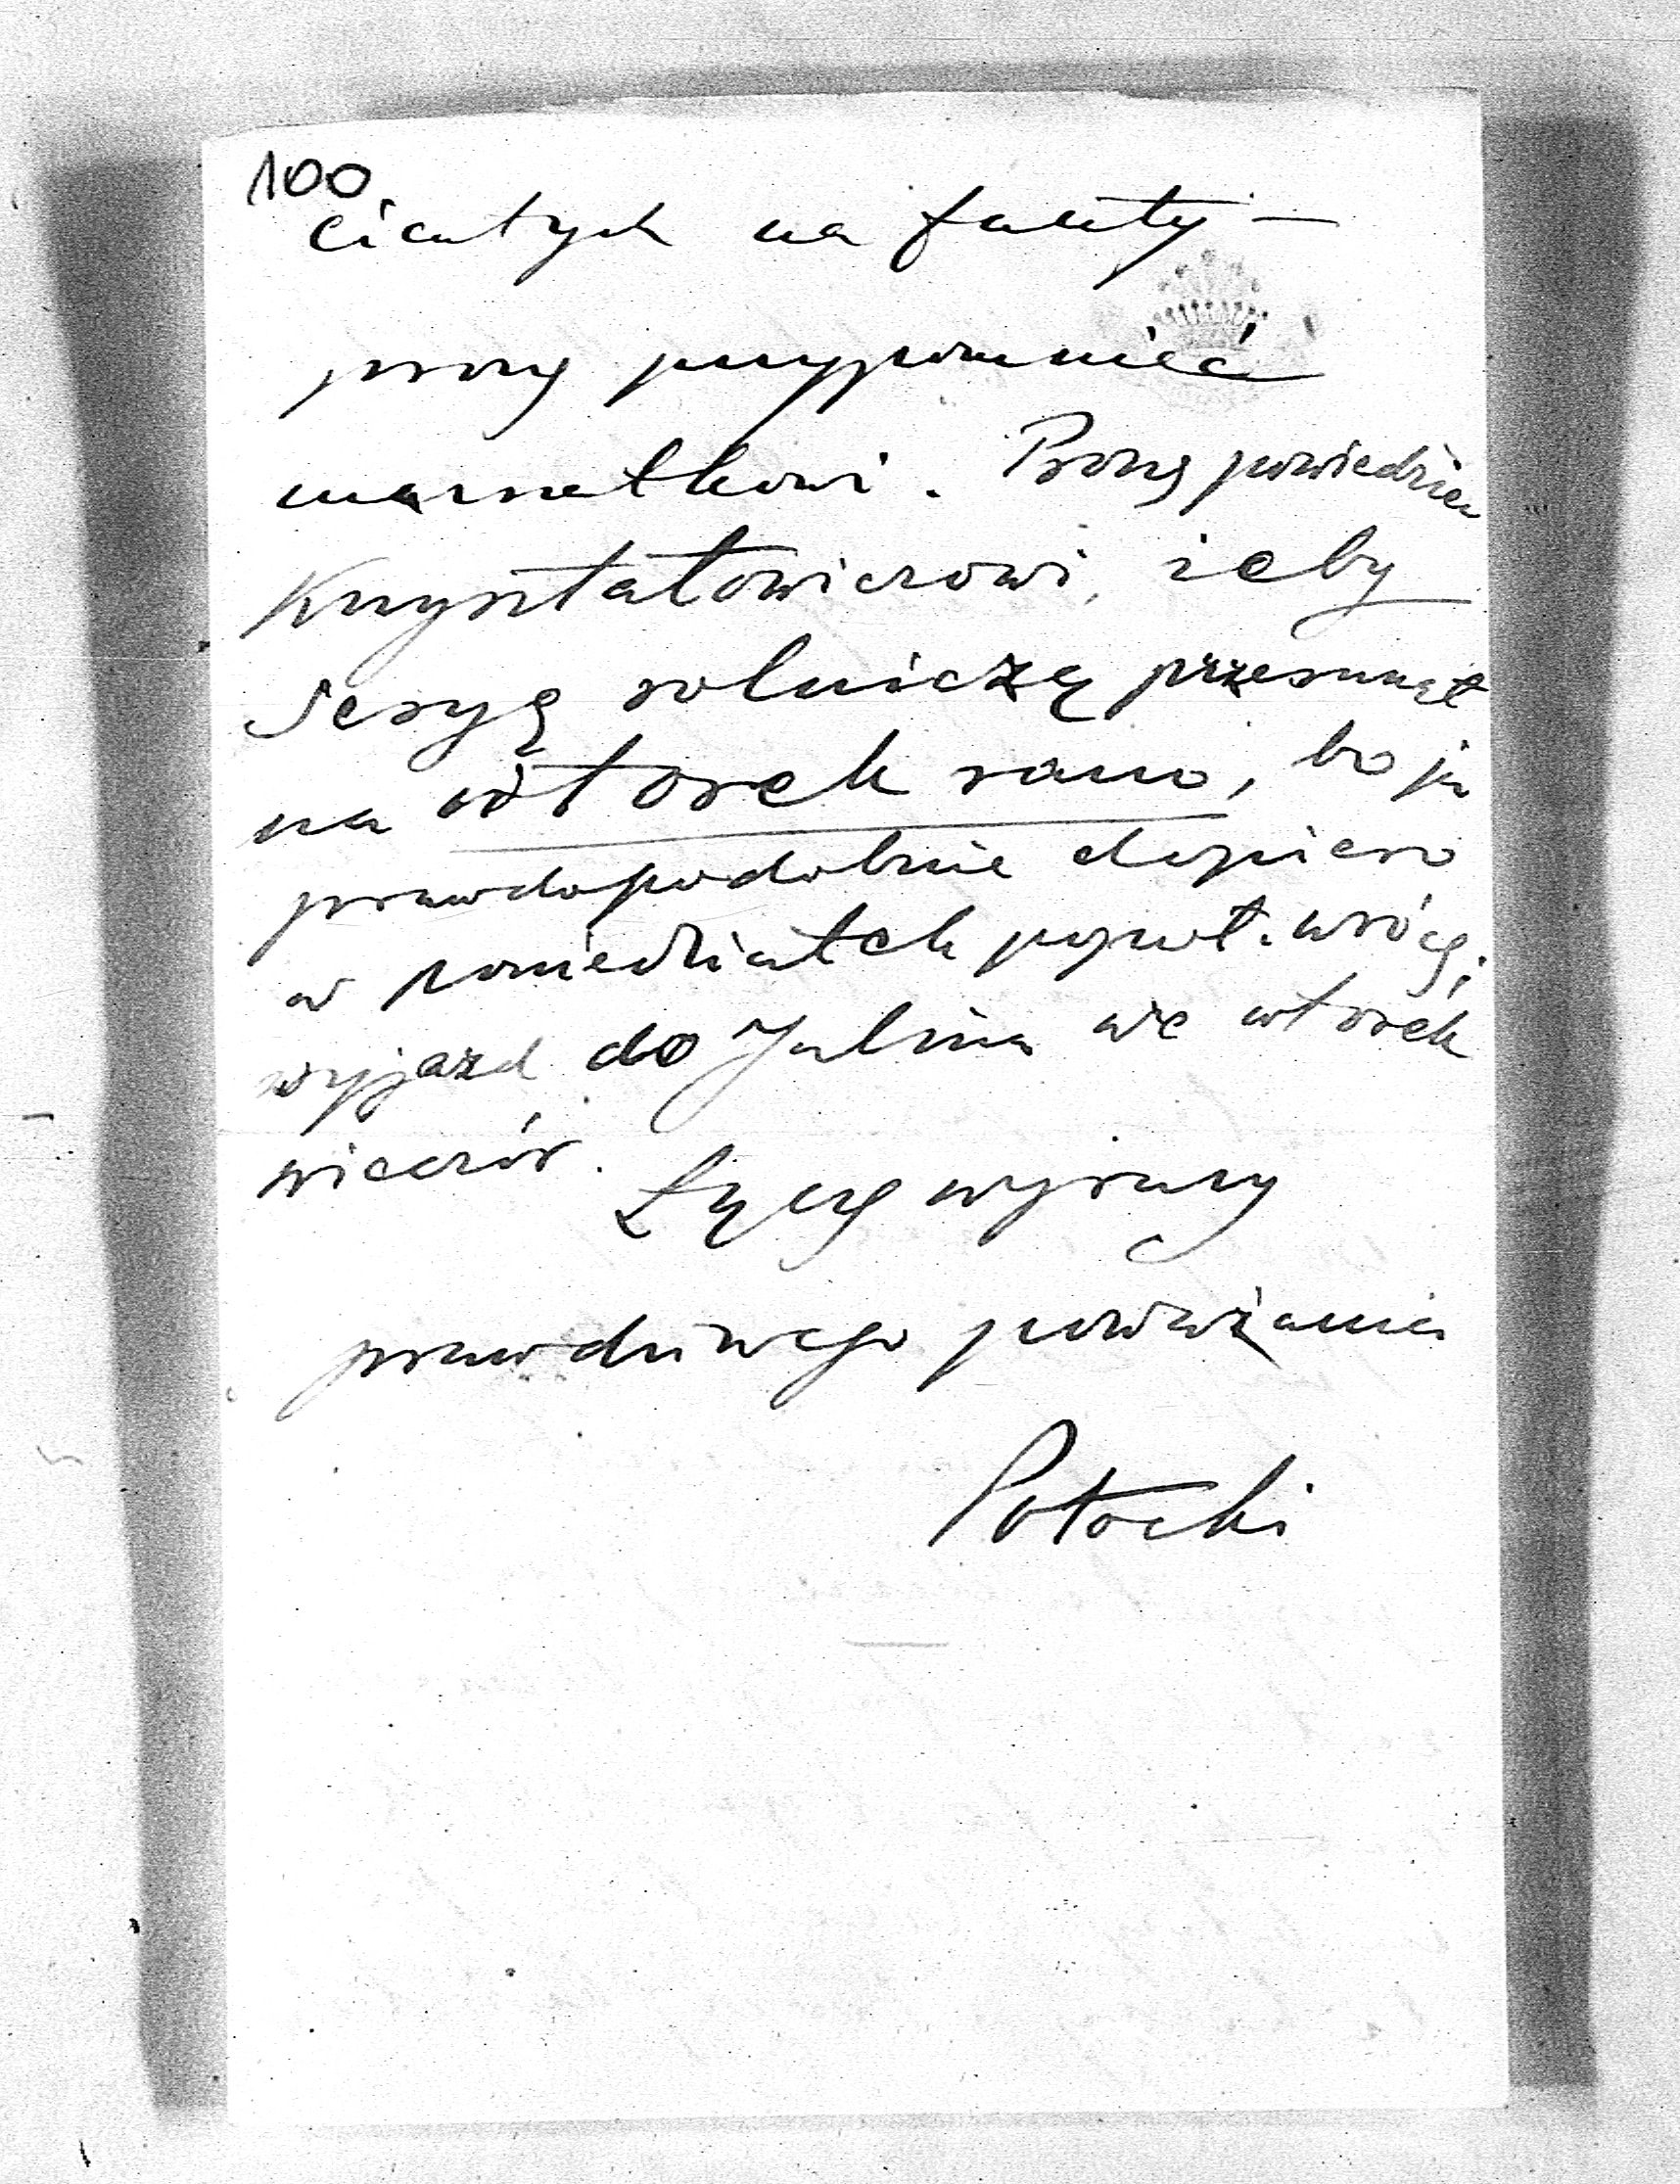 100
ciatych na funty —
proszę przypomnieć
marszałkowi. Proszę powiedzieć
Krzyształowiczowi, żeby
Sesyę rolniczą przesunął
na wtorek rano, bo ja
prawdopodobnie dopiero
w poniedziałek popoł. wrócę;
wyjazd do Julina we wtorek
wieczór.
Łączę wyrazy
prawdziwego poważania
Potocki